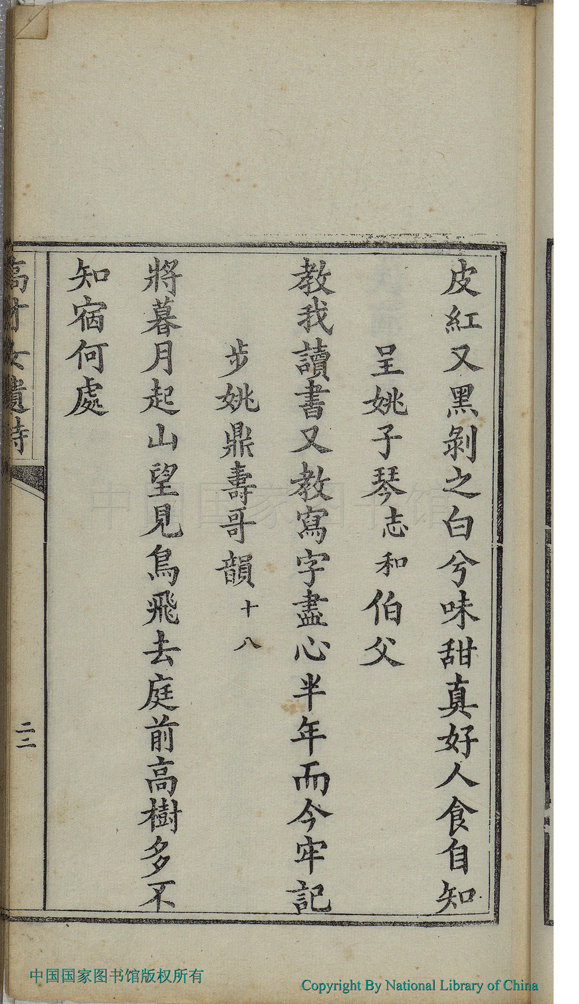 皮紅又黑剝之白兮味甜真好人食自知
呈姚子琴志和伯父
教我讀書又教寫字盡心半年而今牢記
步姚鼎壽哥韻十八
將暮月起山望見鳥飛去庭前高樹多不
知宿何處
高才女遺詩
二二
中国国家图书馆
中国国家图书馆版权所有
Copyright By National Library of China